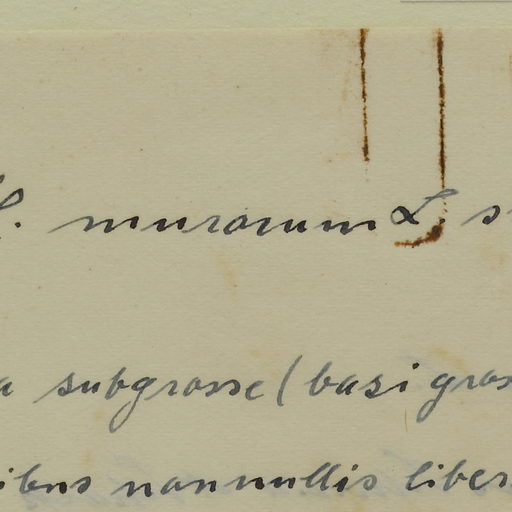 H. murorum L. s
a subgrosse (basi gros
ibus nonnullis liber